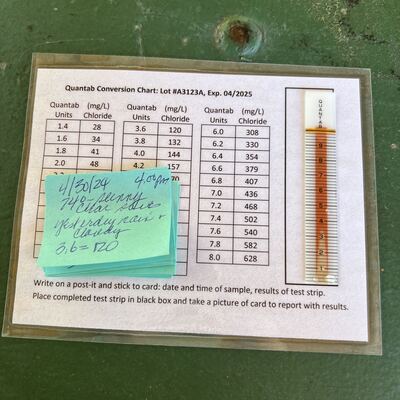 Quantab Conversion Chart: Lot #A3123A, Exp. 04/2025
Quantab (mg/L) Quantab (mg/L) Quantab (mg/L)
Units Chloride Units Chloride Units Chloride
1.4 28 3.6 120 6.0 308
1.6 34 3.8 132 6.2 330
1.8 41 4.0 144 6.4 354
2.0 48 4.2 157 6.6 379
70 6.8 407
7.0 436
7.2 468
7.4 502
7.6 540
7.8 582
8.0 628
4/30/24
74° - sunny
clear skies
yesterday rain +
cloudy
3.6 = 120
QUANTAB
9
8
7
6
5
4
3
2
1
Write on a post-it and stick to card: date and time of sample, results of test strip.
Place completed test strip in black box and take a picture of card to report with results.